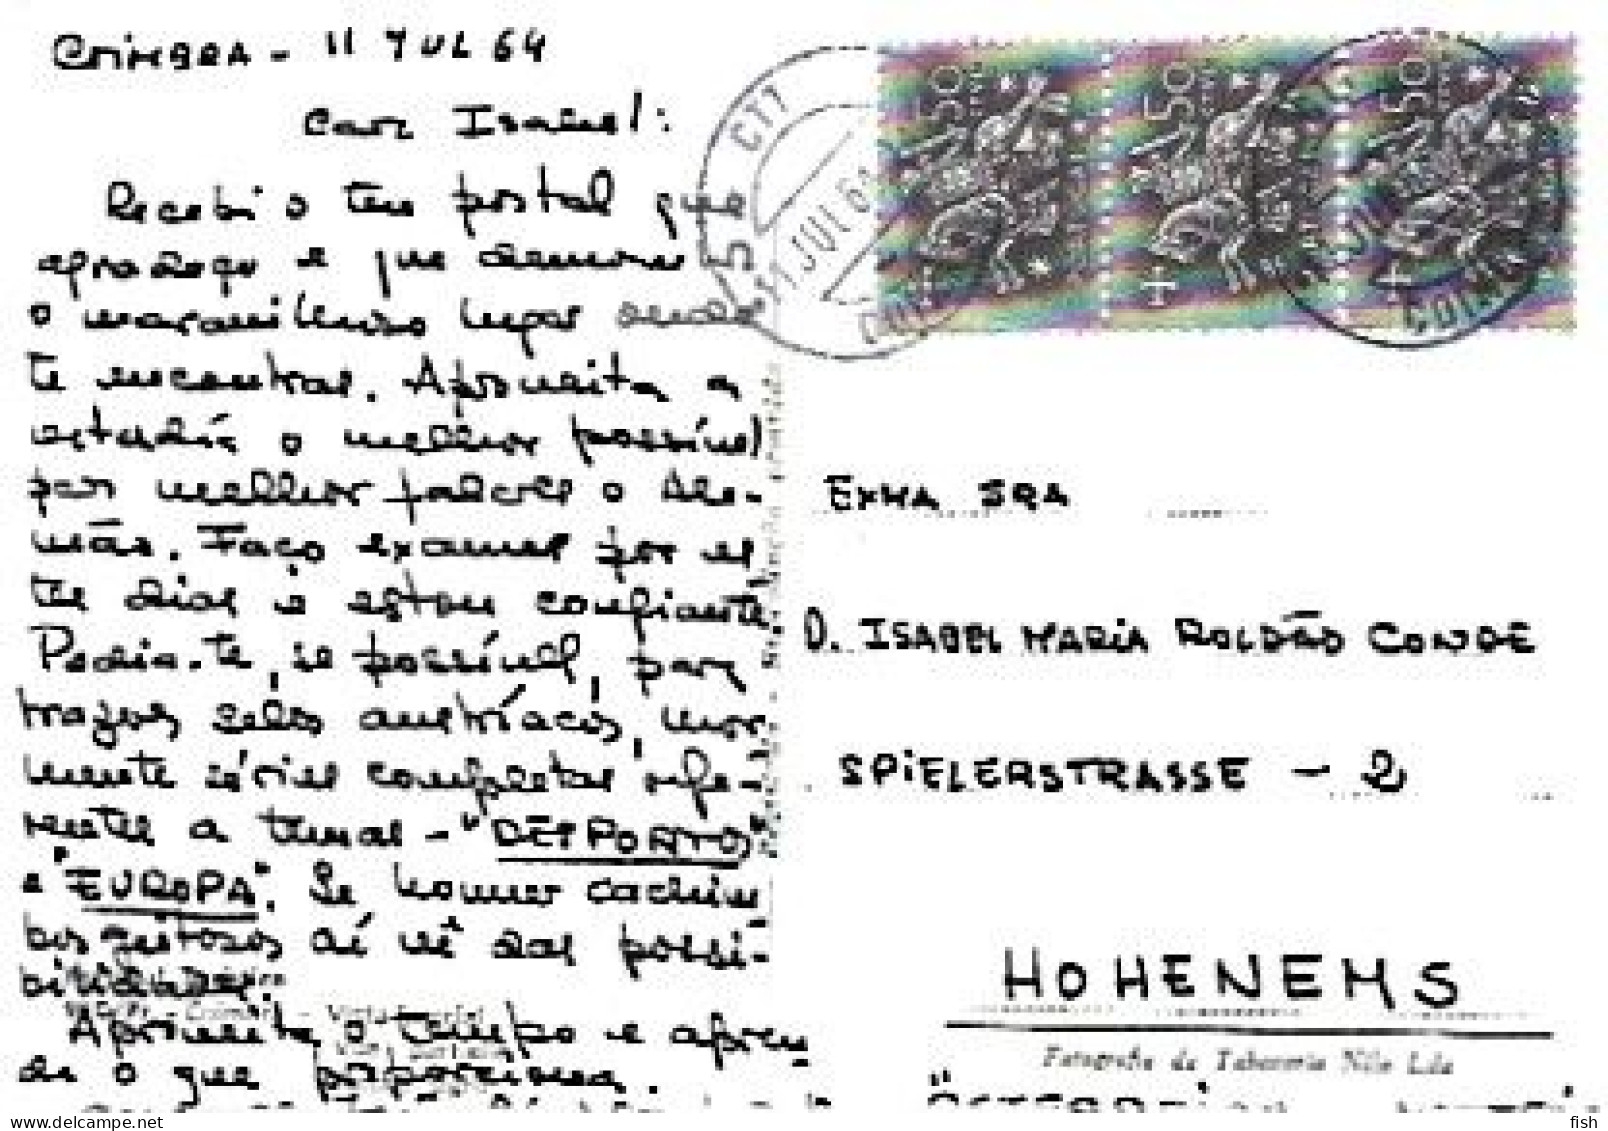 COIMBRA - 11 JUL 64
Cara Isabel:
Recebi o teu postal que
agradeço e que demons
o maravilhoso lugar onde
te encontras. Aproveita a
estadia o melhor possível
para melhor falares o Ale-
mão. Faço exames por es
tes dias e estou confiante.
Pedia-te, se possível, para
trazeres selos austríacos, mor
mente séries completas refe-
rentes a temas - "DESPORTOS"
e "EUROPA". Se houver cachim
bos jeitosos aí vê das possi-
bilidades.
Aproveita o tempo e apren
de o que
CTT
11 JUL 64
COIMBRA
50
50
50
EXMA SRA
D. ISABEL MARIA ROLDÃO CONDE
SPIELERSTRASSE - 2
HOHENEMS
Fotografia da Tabacaria Nilo Lda
ÖSTERREICH
delcampe.net
fish